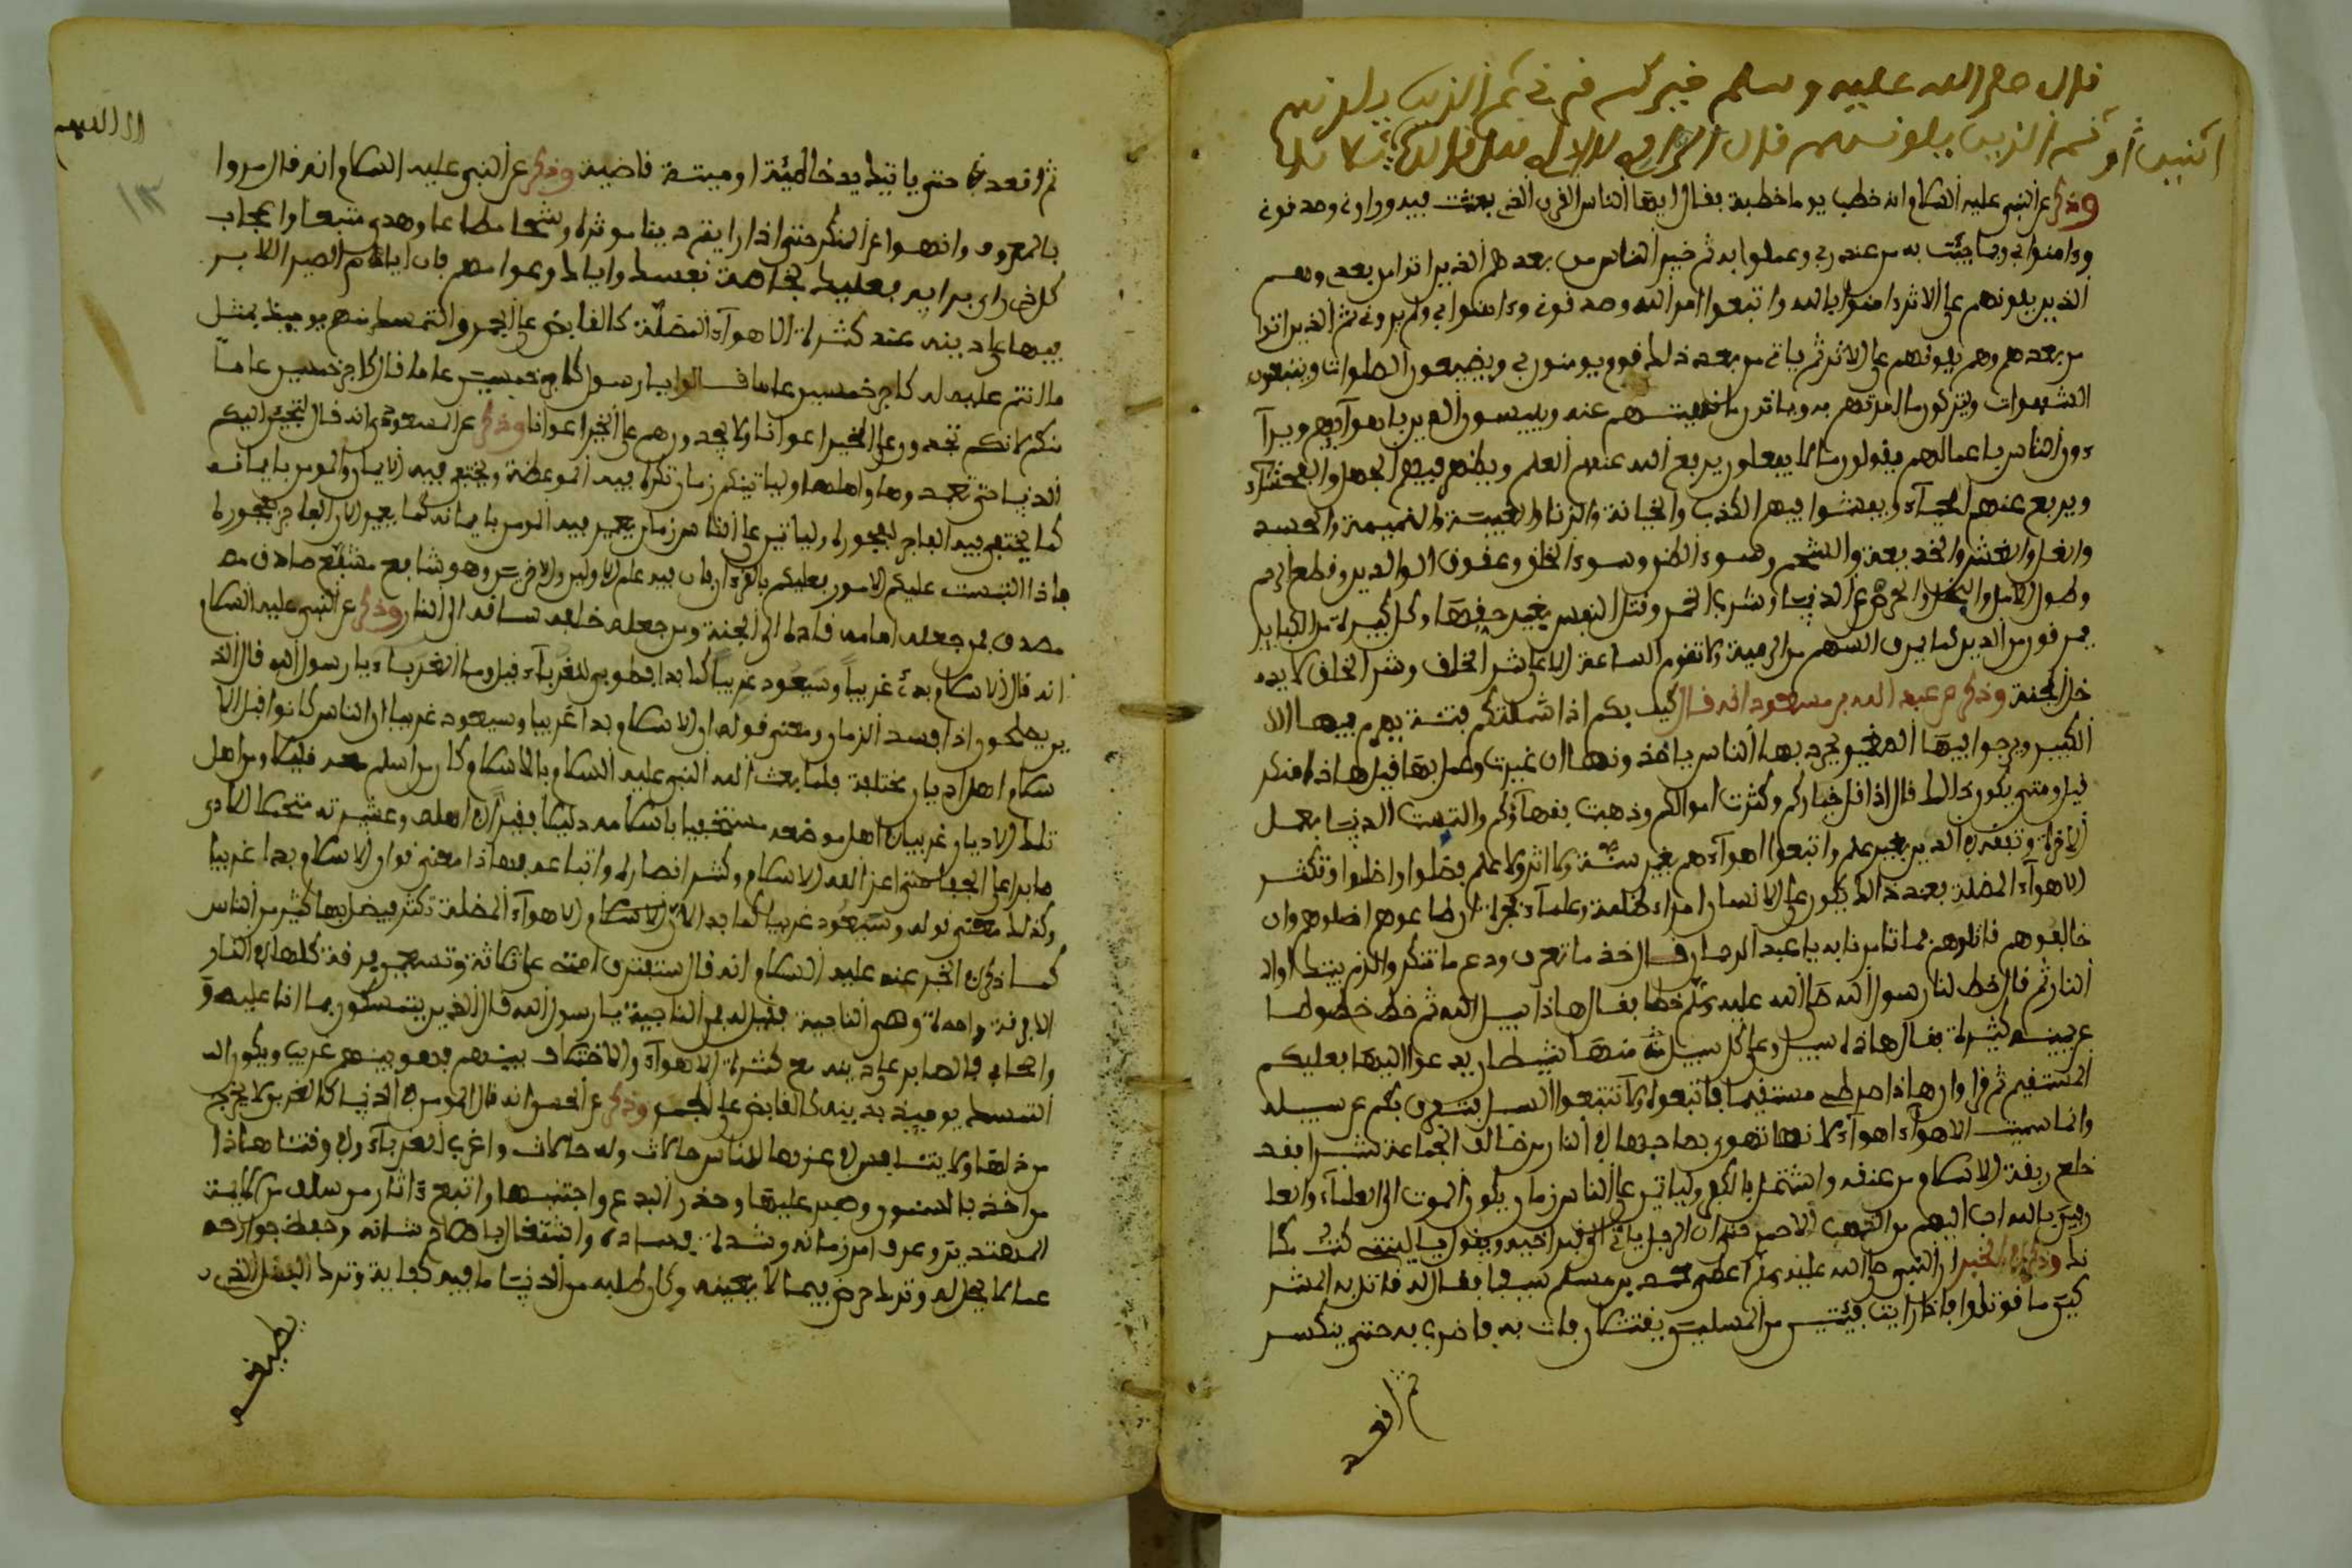 قال صلى الله عليه وسلم خيركم قرني ثم الذين يلونهم
ثم الذين يلونهم قال الراوي لا ادري قال
وذكر عن النبي عليه السلام انه خطب يوما خطبة فقال ايها الناس القرن الذي بعثت فيه وراوني وصدقوني
وءامنوا بي وبما جئت به من عند ربي وعملوا به ثم خير الناس من بعدهم الذين اتوا من بعدي وهم
الذين يلونهم على الاثر ءامنوا بالله واتبعوا امر الله وصدقوني وءامنوا بي ولم يروني ثم الذين اتوا
من بعدهم وهم يلونهم على الاثر ثم ياتي من بعد ذلك قوم يومنون بي ويضيعون الصلوات ويتبعون
الشهوات ويتركون ما امرتهم به وياتون ما نهيتهم عنه ويلبسون الدين باهوائهم ويرآ
ءون الناس باعمالهم يقولون ما لا يفعلون يرفع الله عنهم العلم ويظهر فيهم الجهل والفحشاء
ويرفع عنهم الحياء ويفشوا فيهم الكذب والخيانة والزنا والغيبة والنميمة والحسد
والغل والغش والخديعة والشح وسوء الظن وسوء الخلق وعقوق الوالدين وقطع الرحم
وطول الامل والبخل والحرص على الدنيا وشرب الخمر وقتل النفس بغير حقها وكل كبيرة من الكباير
يمرقون من الدين كما يمرق السهم من الرمية ولا تقوم الساعة الا على شر الخلق وشر الخلق لا يد
خل الجنة وذكر عن عبد الله بن مسعود انه قال كيف بكم اذا شملتكم فتنة يهرم فيها
الكبير ويربوا فيها الصغير يجري بها الناس ياخذونها ان غيرت وعمل بها قيل هاذا منكر
قيل ومتى يكون ذالك قال اذا قل خياركم وكثرت اموالكم وذهبت فقهاؤكم والتمست الدنيا بعمل
الاخرة وتفقه في الدين بغير علم واتبعوا اهواءهم بغير سنة ولا اثر ولا علم فضلوا واضلوا وتكثر
الاهواء المضلة بعد ذالك يكون على الانسان امراء ظلمة وعلماء فجرة ان طاعوهم اضلوهم وان
خالفوهم قاتلوهم فما تامرنا به يا عبد الرحمان قال خذ ما تعرف ودع ما تنكر والزم بيتك اوان
النار ثم قال خط لنا رسول الله صلى الله عليه وسلم خطا فقال هاذا سبيل الله ثم خط خطوطا
عن يمينه كثيرة فقال هاذه سبل وعلى كل سبيل منها شيطان يدعوا اليها فعليكم
المستقيم ثم قرا وان هاذا صراطي مستقيما فاتبعوه ولا تتبعوا السبل فتفرق بكم عن سبيله
وانما سميت الاهواء اهواء لانها تهوي بصاحبها في النار من خالف الجماعة شبرا فقد
خلع ربقة الاسلام من عنقه وليأتين على الناس زمان يكون الموت الى العلماء والعا
رفين بالله احب اليهم من الذهب الاحمر حتى ان الرجل ياتي الى قبر اخيه ويقول يا ليتني كنت مكا
نك وذكر في الخبر ان النبي صلى الله عليه وسلم اعطى محمد بن مسلمة سيفا فقال له قاتل به المشر
كين ما قوتلوا فاذا رايت فئتين من المسلمين يقتتلان فات به فاضرب به حتى ينكسر
ثم اقعد
ثم اقعد في بيتك حتى ياتيك يد خاطئة او ميتة قاضية وذكر عن النبي عليه السلام انه قال مروا
بالمعروف وانهوا عن المنكر حتى اذا رايتم دنيا موثرة وشحا مطاعا وهوى متبعا واعجاب
كل ذي راي برايه فعليك بخاصة نفسك واياك وعوامهم فان ايامكم الصبر الصابر
فيها على دينه عند كثرة الاهواء المضلة كالقابض على الجمر والتمسك منهم يوميذ بمثل
ما انتم عليه له كاجر خمسين عاملا قالوا يا رسول الله كاجر خمسين عاملا قال كاجر خمسين عاملا
منكم لانكم تجدون على الخير اعوانا ولا يجدون هم على الخير اعوانا وذكر عن ابن مسعود انه قال لتجئن اليكم
الدنيا حتى تعبدوها واهلها ولياتينكم زمان تكره فيه الموعظة ويختفي فيه الايمان والمومن بايمانه
كما يختفي فيه الفاجر بفجوره ولياتين على الناس زمان يعير فيه المومن بايمانه كما يعير الان الفاجر بفجوره
فاذا التبست عليكم الامور فعليكم بالقرءان فان فيه علم الاولين والاخرين وهو شافع مشفع صادق مصدق
مصدق فمن جعله امامه قاده الى الجنة ومن جعله خلفه ساقه الى النار وذكر عن النبي عليه السلام
انه قال الاسلام بدئ غريبا وسيعود غريبا كما بدا فطوبى للغرباء قيل وما الغرباء يا رسول الله قال الذين
يصلحون اذا فسد الزمان ومعنى قوله ان الاسلام بدا غريبا وسيعود غريبا ان الناس كانوا قبل الا
سلام اهل اديار مختلفة فلما بعث الله النبي عليه السلام بالاسلام وكان من اسلم معه قليلا من اهل
تلك الاديار غريبا في اهل موضعه مستخفيا باسلامه ذليلا فقيرا في اهله وعشيرته متحملا الاذى
صابرا على الجفا حتى اعز الله الاسلام وكثر انصاره واتباعه فهاذا معنى قول الاسلام بدا غريبا
وكذلك معنى قوله وسيعود غريبا كما بدا لان الاسلام والاهواء المضلة تكثر فيضل بها كثير من الناس
كما ذكر في الخبر عنه عليه السلام انه قال ستفترق امتي على ثلاثة وسبعين فرقة كلها في النار
الا فرقة واحدة وهي الناجية فقيل له من الناجية يا رسول الله قال الذين يتمسكون بما انا عليه
واصحابي فالصابر على دينه مع كثرة الاهواء والاختلاف بينهم فهو بينهم غريب ويكون
المتمسك يوميذ بدينه كالقابض على الجمر وذكر عن الحسن انه قال المومن في الدنيا كالغريب لا يجزع
من ذلها ولا يتنافس في عزها للناس حالات وله حالات واغرب الغرباء في وقتنا هاذا
من اخذ بالسنن وصبر عليها وحذر البدع واجتنبها واتبع ءاثار من سلف من ائمة
المهتدين وعرف امر زمانه وشدة فساده واشتغل باصلاح شانه وحفظ جوارحه
عما لا يحل له وترك الخوض فيما لا يعنيه وكان طلبه من الدنيا ما فيه كفاية وترك الفضل الذي